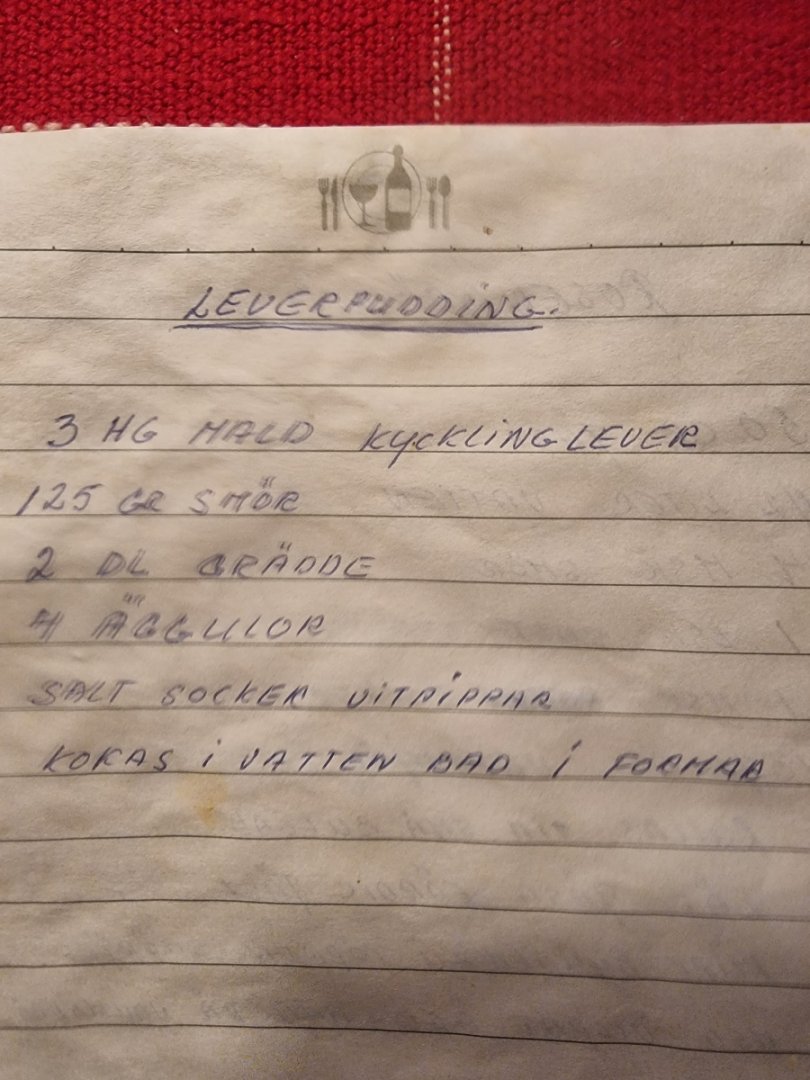 LEVERPUDDING.
3 HG MALD KYCKLINGLEVER
125 GR SMÖR
2 DL GRÄDDE
4 ÄGGULOR
SALT SOCKER VITPIPPAR
KOKAS i VATTEN BAD i FORMAR